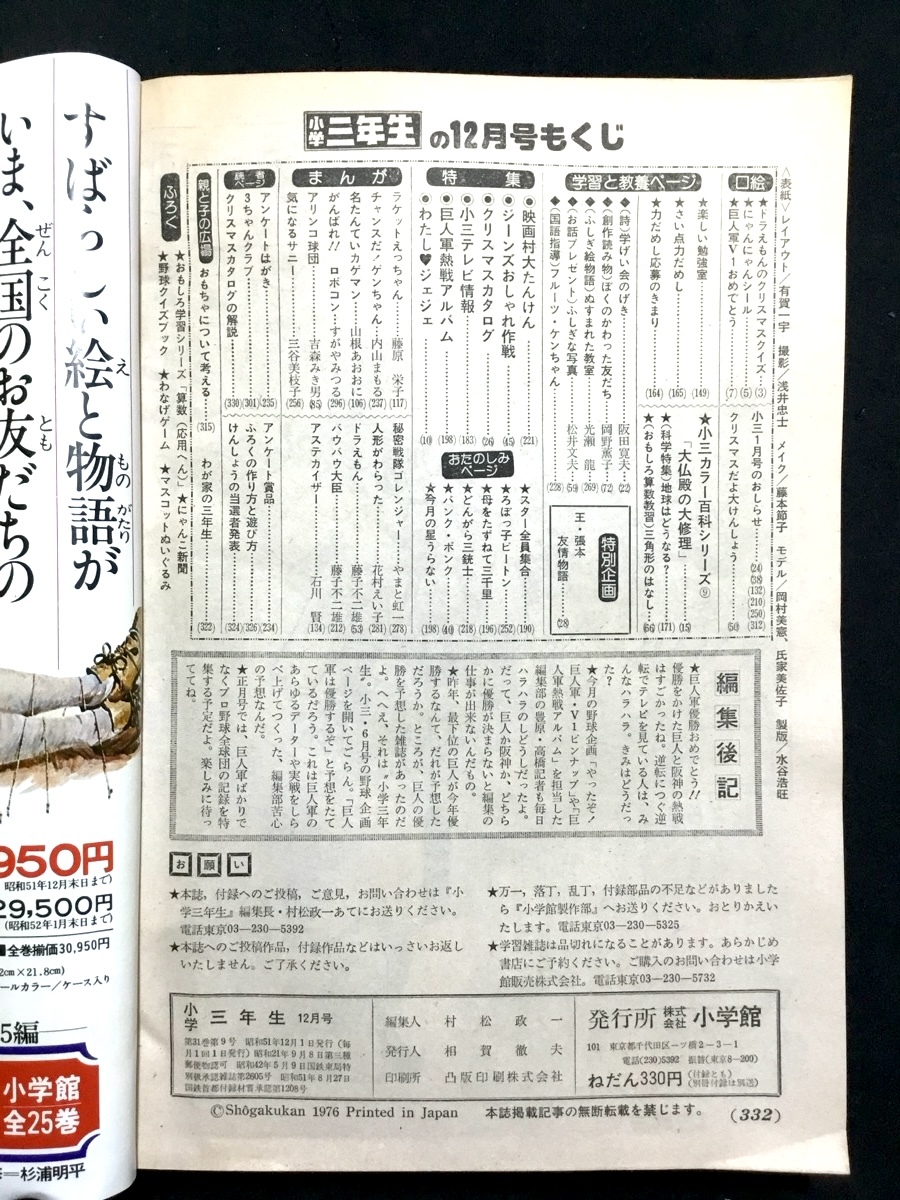 小学三年生の12月号もくじ
〈表紙〉レイアウト／有賀一宇　撮影／浅井忠士　メイク／藤本節子　モデル／岡村美憲、氏家美佐子　製版／水谷浩旺
口絵
★ドラえもんのクリスマスクイズ…(3)
★にゃんにゃんシール…(5)
★巨人軍V1おめでとう…(7)
小三1月号のおしらせ…(24)(38)(132)(210)(250)(312)
クリスマスだよ大けんしょう…(50)
学習と教養ページ
★楽しい勉強室…(149)
★さい点力だめし…(165)
★力だめし応募のきまり…(164)
★小三カラー百科シリーズ⑨
「大仏殿の大修理」…(15)
★(科学特集)地球はどうなる?…(171)
★(おもしろ算数教習)三角形のはなし…(66)
◆(詩)学げい会のげき…阪田寛夫…(22)
◆(創作読み物)ぼくのかわった友だち…岡野薫子…(72)
◆(ふしぎ絵物語)ぬすまれた教室…光瀬　龍…(269)
◆(お話プレゼント)ふしぎな写真…松井文夫…(59)
◆(国語指導)フルーツ・ケンちゃん…(228)
特別企画
王・張本
友情物語…(28)
特集
●映画村大たんけん…(221)
●ジーンズおしゃれ作戦…(45)
●クリスマスカタログ…(26)
●小三テレビ情報…(183)
●巨人軍熱戦アルバム…(198)
●わたし♥ジェジェ…(10)
おたのしみページ
★スター全員集合…(190)
★ろぼっ子ビートン…(252)
★母をたずねて三千里…(196)
★どんがら三銃士…(218)
★バンク・ボンク…(40)
★今月の星うらない…(198)
まんが
ラケットえっちゃん…藤原　栄子(117)
チャンスだ!ゲンちゃん…内山まもる(237)
名たんていカゲマン…山根あおおに(106)
がんばれ!!ロボコン…すがやみつる(296)
アリンコ球団…吉森みき男(85)
気になるサニー…三谷美枝子(256)
秘密戦隊ゴレンジャー…やまと虹一(278)
人形がわらった…花村えい子(281)
ドラえもん…藤子不二雄(53)
バウバウ大臣…藤子不二雄(212)
アステカイザー…石川　賢(134)
読者ページ
アンケートはがき…(235)
3ちゃんクラブ…(301)
クリスマスカタログの解説…(330)
アンケート賞品…(234)
ふろくの作り方と遊び方…(326)
けんしょうの当選者発表…(324)
親と子の広場
おもちゃについて考える…(315)
わが家の三年生…(322)
ふろく
★おもしろ学習シリーズ「算数(応用へん)」★にゃんこ新聞
★野球クイズブック　★わなげゲーム　★マスコットぬいぐるみ
編集後記
★巨人軍優勝おめでとう!!
優勝をかけた巨人と阪神の熱戦
はすごかったね。逆転につぐ逆
転でテレビを見ている人は、み
んなハラハラ。きみはどうだっ
た?
★今月の野球企画「やったぞ!
巨人軍・V1ピンナップ」や「巨
人軍熱戦アルバム」を担当した
編集部の豊原・高橋記者も毎日
ハラハラのしどうしだったよ。
だって、巨人か阪神か、どちら
かに優勝が決まらないと編集の
仕事が出来ないんだもの。
★昨年、最下位の巨人が今年優
勝するなんて、だれが予想した
だろうか。ところが、巨人の優
勝を予想した雑誌があったのだ
よ。へへえ、それは"小学三年
生"。小三・6月号の野球企画
ページを開いてごらん。「巨人
軍は優勝するぞ」と予想をたて
ているだろう。これは巨人軍の
あらゆるデーターや実戦をしら
べ上げてつくった、編集部苦心
の予想なんだ。
★正月号では、巨人軍ばかりで
なくプロ野球全球団の記録を特
集する予定だよ。楽しみに待っ
ててね。
お願い
★本誌、付録へのご投稿，ご意見，お問い合わせは『小
学三年生』編集長・村松政一あてにお送りください。
電話東京03―230―5392
★本誌へのご投稿作品，付録作品などはいっさいお返し
いたしません。ご了承ください。
★万一，落丁，乱丁，付録部品の不足などがありました
ら『小学館製作部』へお送りください。おとりかえい
たします。電話東京03―230―5325
★学習雑誌は品切れになることがあります。あらかじめ
書店にご予約ください。ご購入のお問い合わせは小学
館販売株式会社。電話東京03―230―5732
小学三年生 12月号
第31巻第9号　昭和51年12月1日発行（毎
月1回1日発行）昭和21年9月8日第三種
郵便物認可　昭和42年5月9日国鉄東局特
別扱承認雑誌第2605号　昭和51年8月27日
国鉄首都付録材質承認第1208号
編集人　村　松　政　一
発行人　相　賀　徹　夫
印刷所　凸版印刷株式会社
発行所 株式会社 小学館
101　東京都千代田区一ツ橋2―3―1
電話(230)5392　振替(東京8―200)
ねだん330円（付録とも）（別冊付録は別送）
©Shōgakukan 1976 Printed in Japan　本誌掲載記事の無断転載を禁じます。　(332)
絵と物語が
いま、全国のお友だちの
950円
昭和51年12月末日まで)
29,500円
(昭和52年1月末日まで)
■全巻揃価30,950円
2cm×21.8cm)
ールカラー／ケース入り
5編
小学館
全25巻
杉浦明平